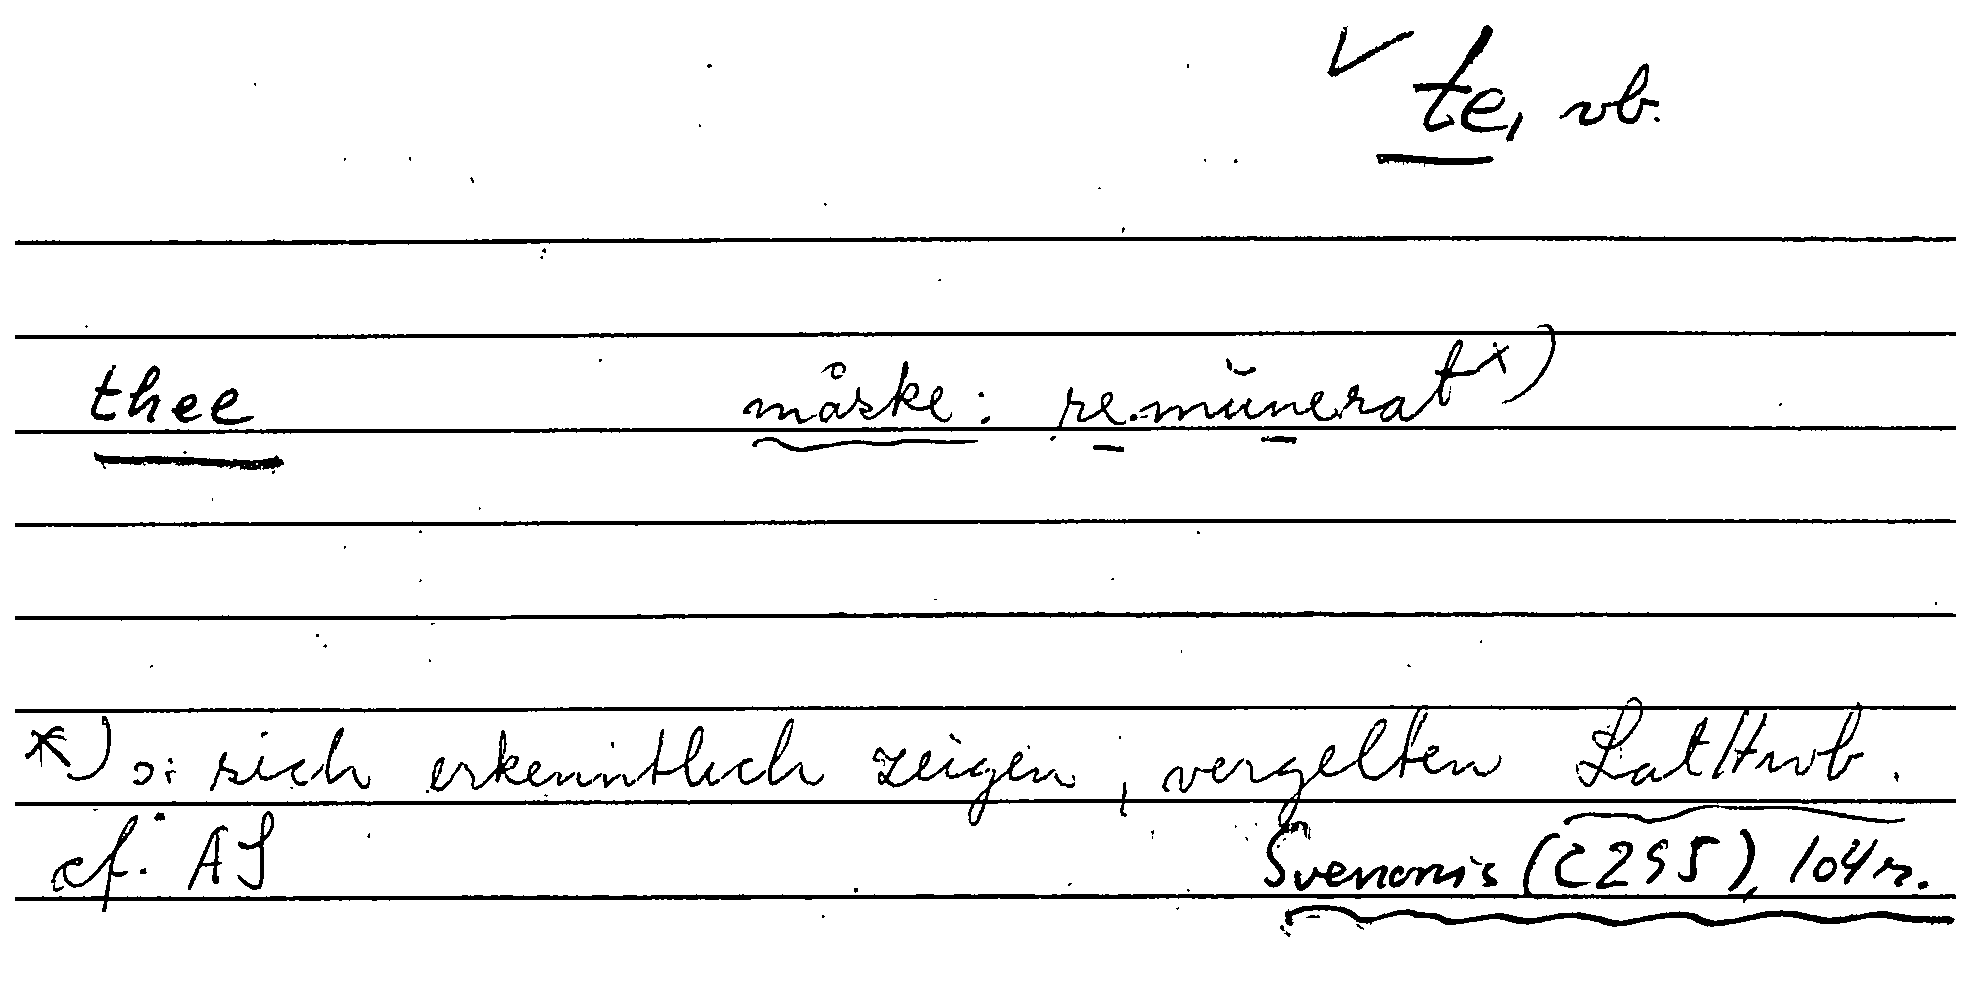 ✓ te, vb.
thee måske: remŭnerat x)
x) ɔ: sich erkenntlich zeigen, vergelten LatHwb.
cf. AS Svenonis (C295), 104r.